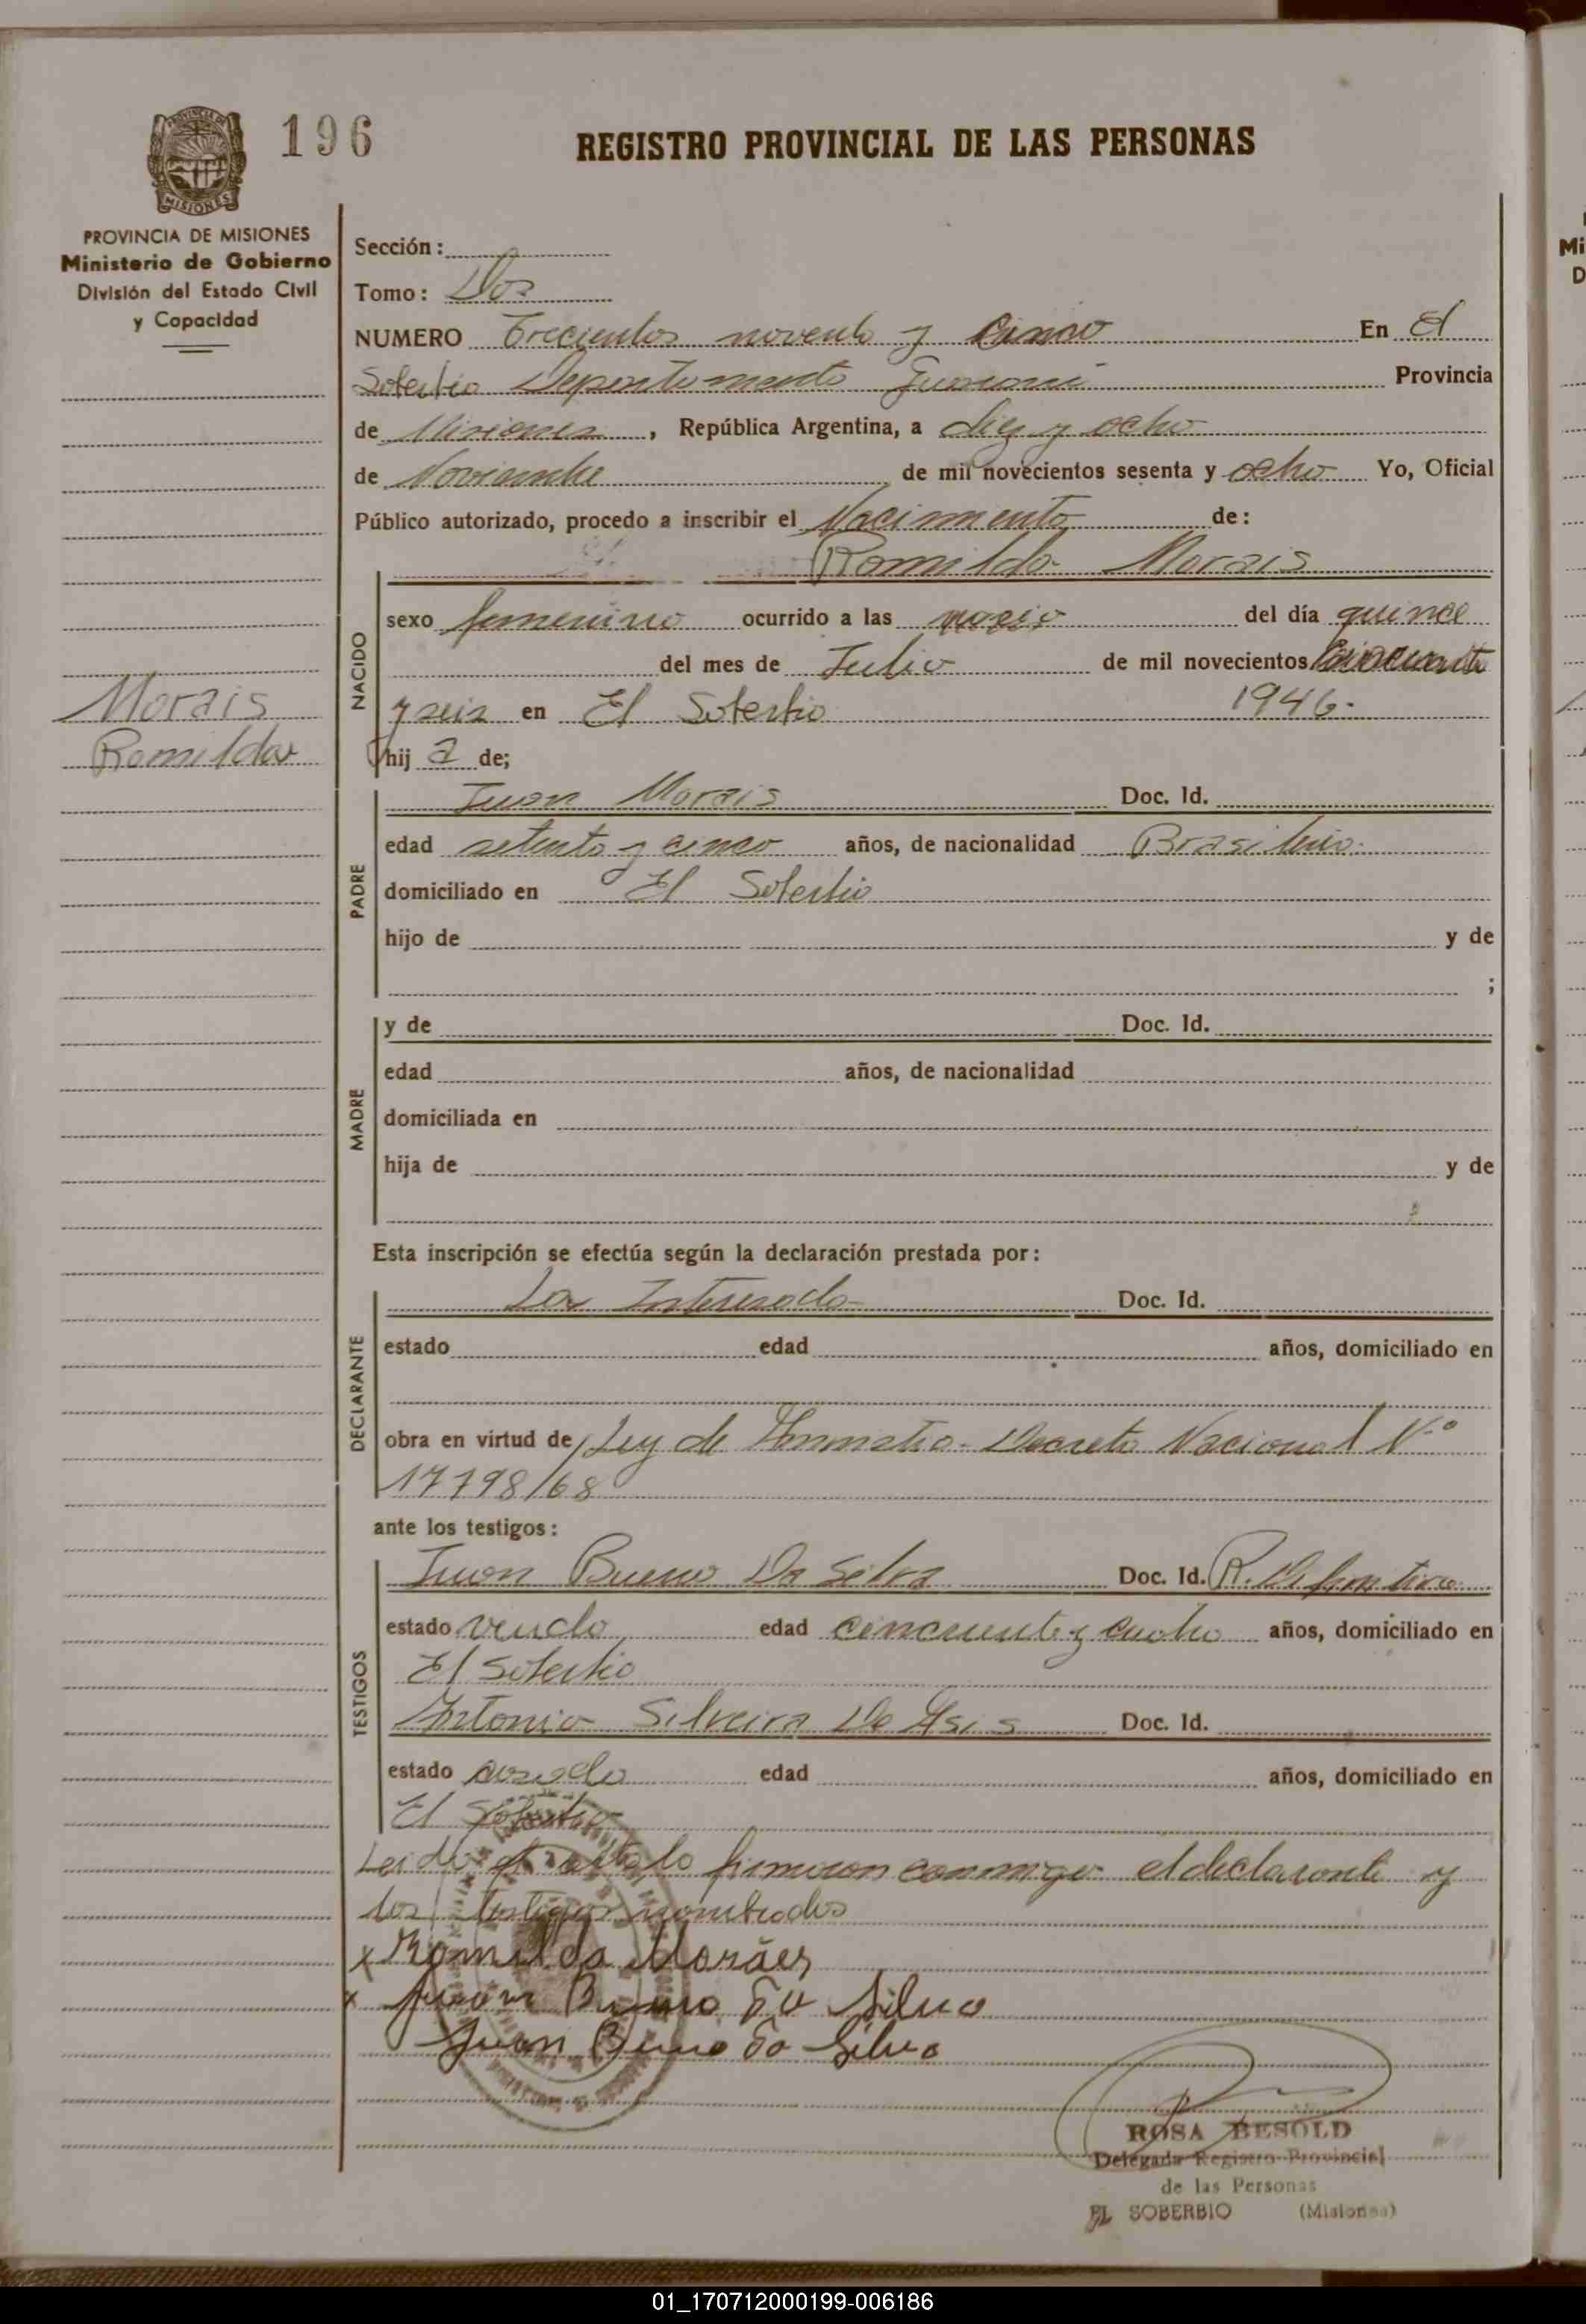 196
REGISTRO PROVINCIAL DE LAS PERSONAS
PROVINCIA DE MISIONES
Ministerio de Gobierno
División del Estado Civil
y Capacidad
Morais
Romilda
Sección:
Tomo: Dos
NUMERO Trecientos noventa y cinco En El
Soberbio Departamento Guaraní Provincia
de Misiones, República Argentina, a diez y ocho
de Noviembre de mil novecientos sesenta y ocho Yo, Oficial
Público autorizado, procedo a inscribir el Nacimiento de:
Romilda Morais
NACIDO
sexo femenino ocurrido a las del día quince
del mes de Julio de mil novecientos
y seis en El Soberbio 1946.
hij a de;
PADRE
Juan Morais Doc. Id.
edad setenta y cinco años, de nacionalidad Brasileño.
domiciliado en El Soberbio
hijo de y de
;
MADRE
y de Doc. Id.
edad años, de nacionalidad
domiciliada en
hija de y de
Esta inscripción se efectúa según la declaración prestada por:
DECLARANTE
La Interesada Doc. Id.
estado edad años, domiciliado en
obra en virtud de Ley de Amnistia. Decreto Nacional N.°
17798/68
ante los testigos:
TESTIGOS
Juan Bueno Da Silva Doc. Id. R.
estado viudo edad cincuenta y años, domiciliado en
El Soberbio
Antonio Silveira De Asis Doc. Id.
estado casado edad años, domiciliado en
El Soberbio
Leido el acta, lo firmaron conmigo el declarante y
los testigos nombrados
x Romilda Morães
x Juan Bueno da Silva
Juan Bueno da Silva
ROSA BESOLD
Delegada Registro Provincial
de las Personas
EL SOBERBIO (Misiones)
01_170712000199-006186